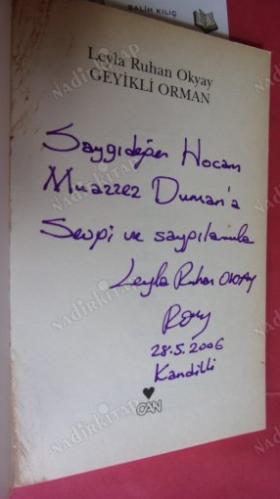 SALİH KILIÇ
Leyla Ruhan Okyay
GEYİKLİ ORMAN
Saygıdeğer Hocam
Muazzez Duman'a
Sevgi ve saygılarımla
Leyla Ruhan OKYAY
28.5.2006
Kandilli
CAN
NadirKitap